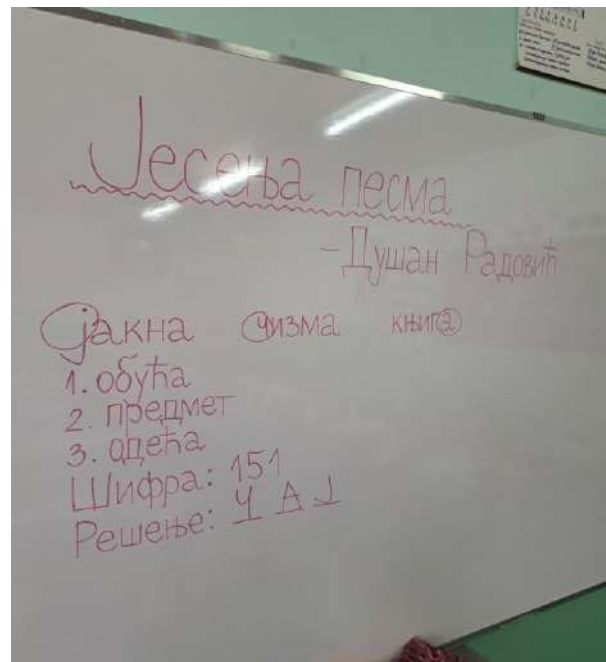 Јесења песма
- Душан Радовић
јакна чизма књига
1. обућа
2. предмет
3. одећа
Шифра: 151
Решење: Ч А Ј